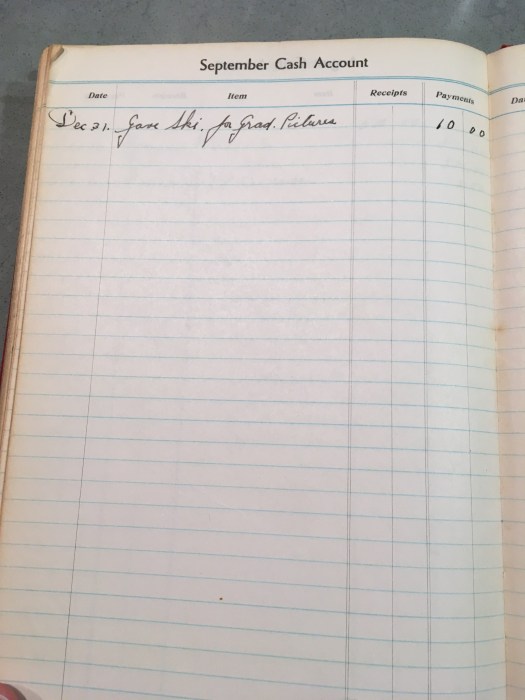 September Cash Account
Date Item Receipts Payments Da
Dec 21. Gave Ski. for Grad. Pictures 10 00